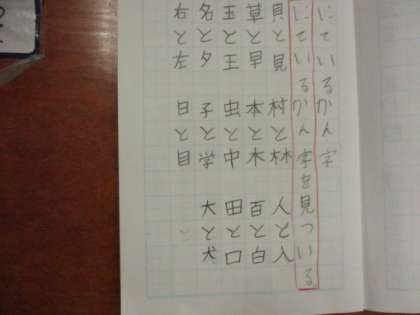 にているかん字
にているかん字を見つける
貝と見 村と林 人と入
草と早 本と木 百と白
玉と王 虫と中 田と口
名と夕 子と学 大と犬
右と左 日と目